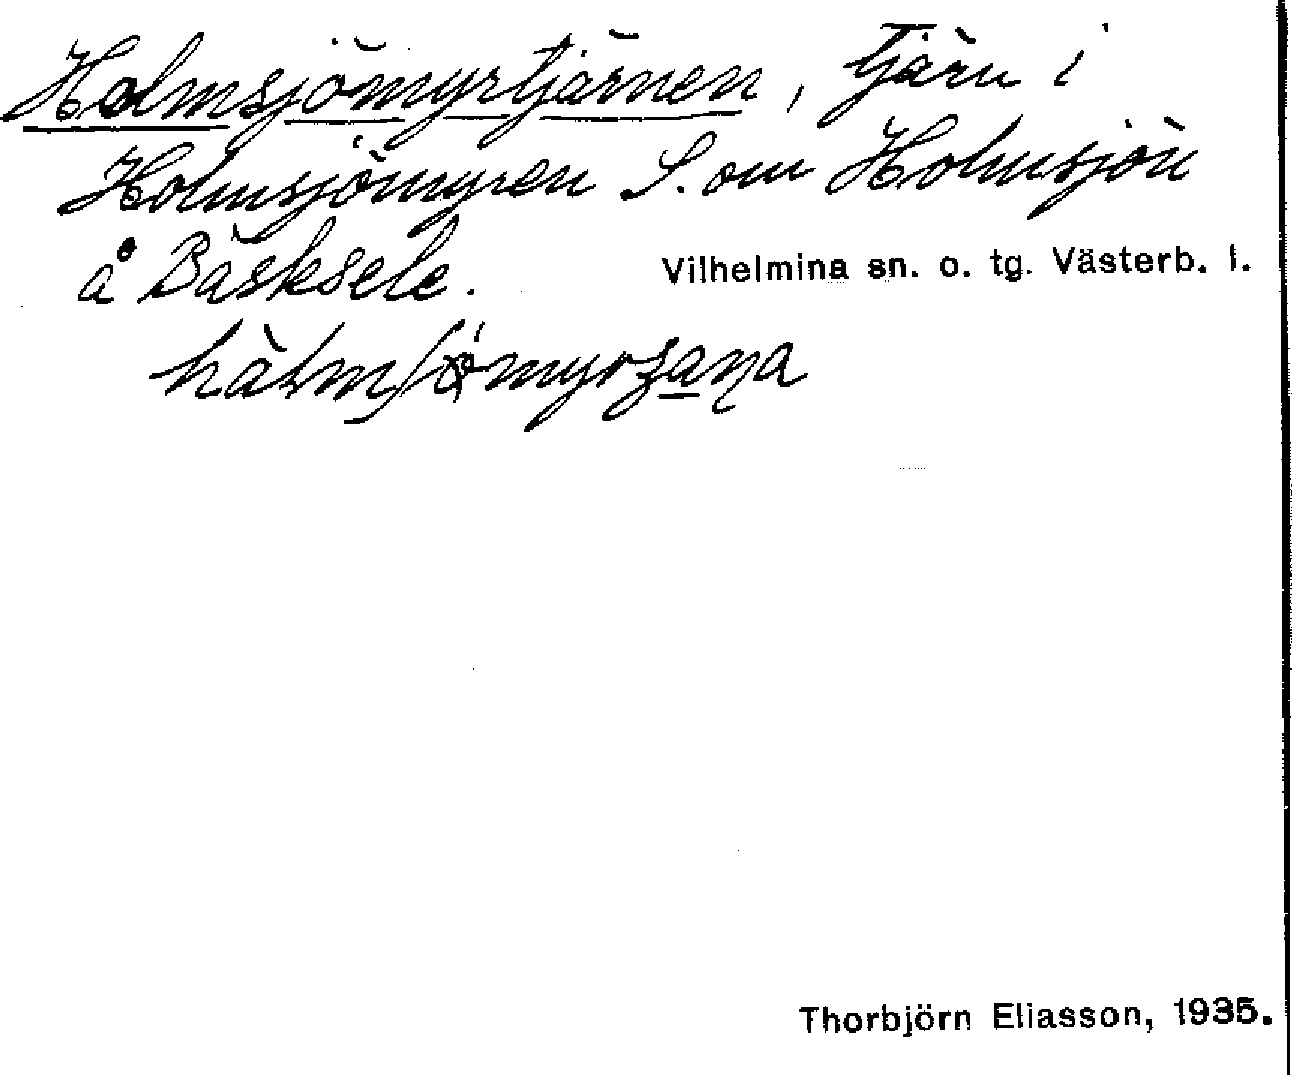 Holmsjömyrtjärnen, tjärn i
Holmsjömyren S. om Holmsjön
å Bäsksele.
Vilhelmina sn. o. tg. Västerb. l.
Thorbjörn Eliasson, 1935.